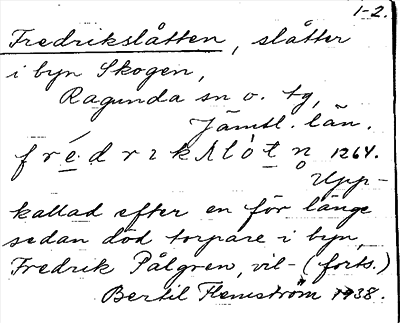 1-2.
Fredrikslåtten, slåtter
i byn Skogen,
Ragunda sn o. tg,
Jämtl. län.
1264.
Upp-
kallad efter en för länge
sedan död torpare i byn,
Fredrik Pålgren, vil- (forts.)
Bertil Flemström 1938.